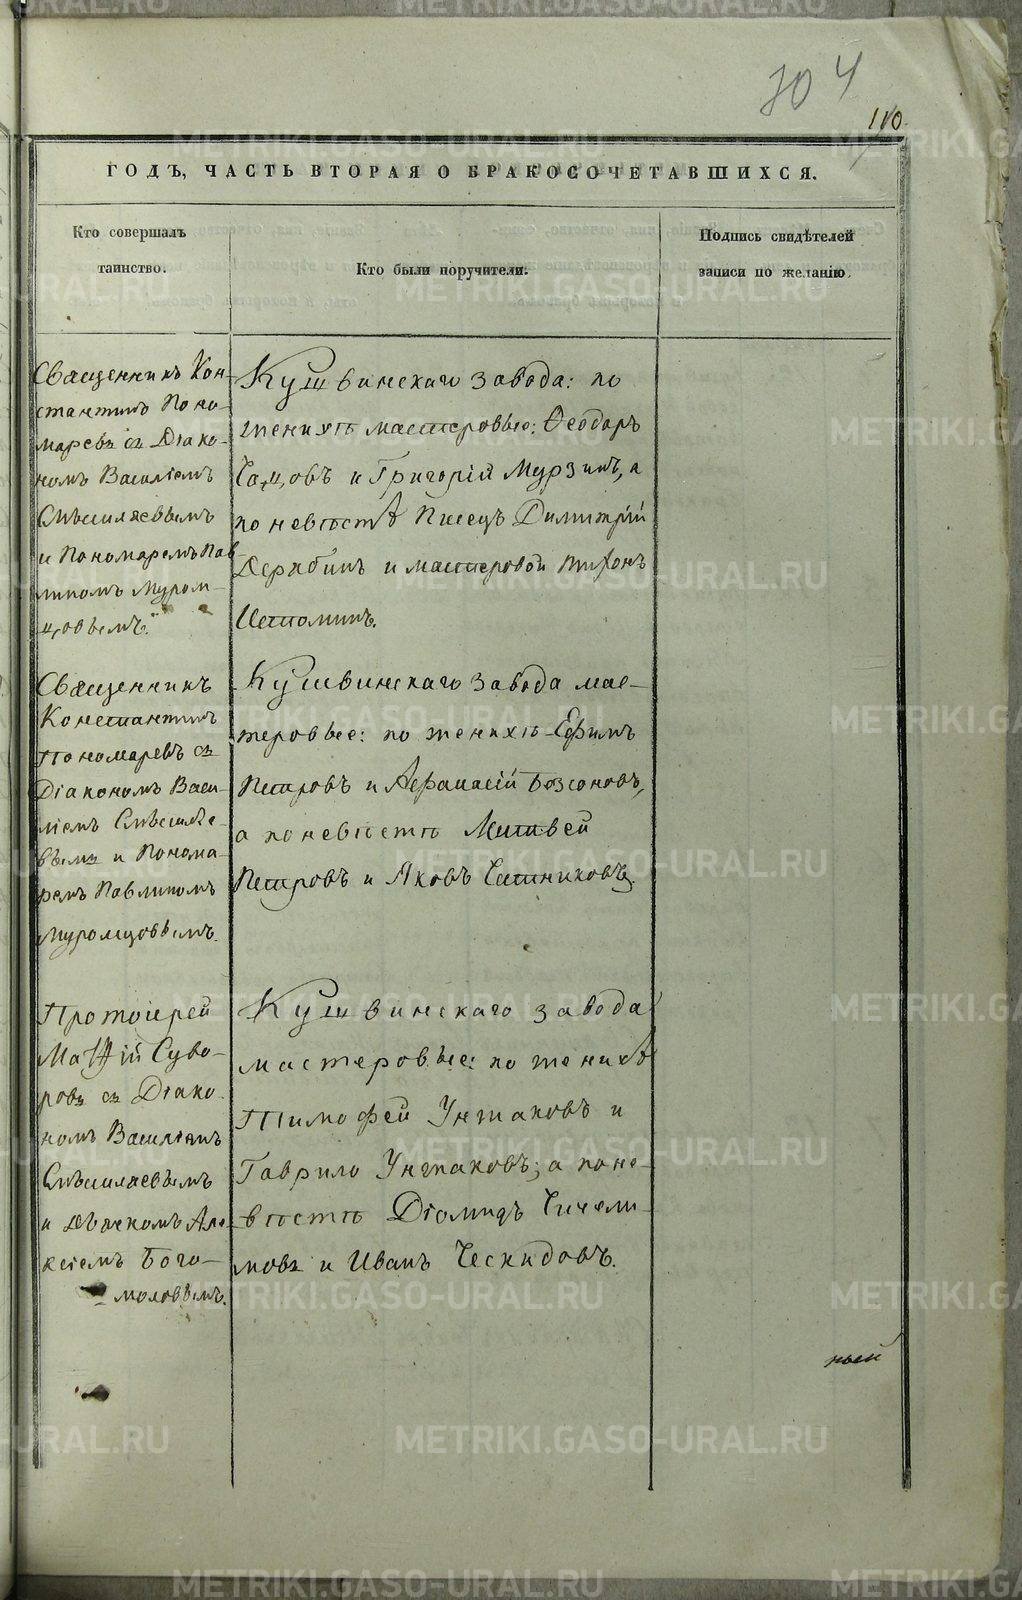 704
110
ГОДЪ, ЧАСТЬ ВТОРАЯ О БРАКОСОЧЕТАВШИХСЯ.
Кто совершалъ
таинство.
Кто были поручители.
Подпись свидѣтелей
записи по желанію.
Священникъ Кон-
стантинъ Поно-
маревъ съ Діако-
номъ Василіемъ
Смышляевымъ
и Пономаремъ Пав-
линомъ Муром-
цовымъ.
Кушвинскаго завода: по
женихѣ мастеровые: Ѳеодоръ
и Григорій Мурзинъ, а
по невѣстѣ Писецъ Димитрій
Дерябинъ и мастеровой Тихонъ
Истоминъ.
Священникъ
Константинъ
Пономаревъ съ
Діакономъ Васи-
ліемъ Смышляе-
вымъ и Понома-
ремъ Павлиномъ
Муромцовымъ.
Кушвинскаго завода мас-
теровые: по женихѣ Ефимъ
Петровъ и Афанасій
а по невѣстѣ Матвей
Петровъ и Яковъ
Протоіерей
Матѳій Суво-
ровъ съ Діако-
номъ Василіемъ
Смышляевымъ
и Дьячкомъ Але-
ксіемъ Бого-
моловымъ.
Кушвинскаго завода
мастеровые: по женихѣ
Тимофей Унжаковъ и
Гаврило Унжаковъ; а по не-
вѣстѣ Діомидъ Чичели-
мовъ и Иванъ Ческидовъ.
ный
METRIKI.GASO-URAL.RU